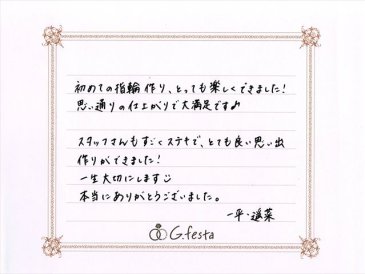 初めての指輪作り、とっても楽しくできました!
思い通りの仕上がりで大満足です♪
スタッフさんもすごくステキで、とても良い思い出
作りができました!
一生大切にします☺
本当にありがとうございました。
一平・遥菜
G.festa